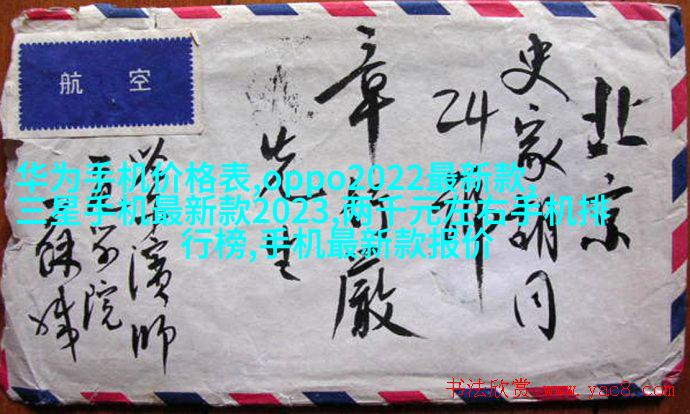 航空
北京
史家胡同
24
章 嚴
先生
濱師
学院
华为手机价格表,oppo2022最新款,
三星手机最新款2023,两千元左右手机排
行榜,手机最新款报价
书法欣赏 www.yac8.com